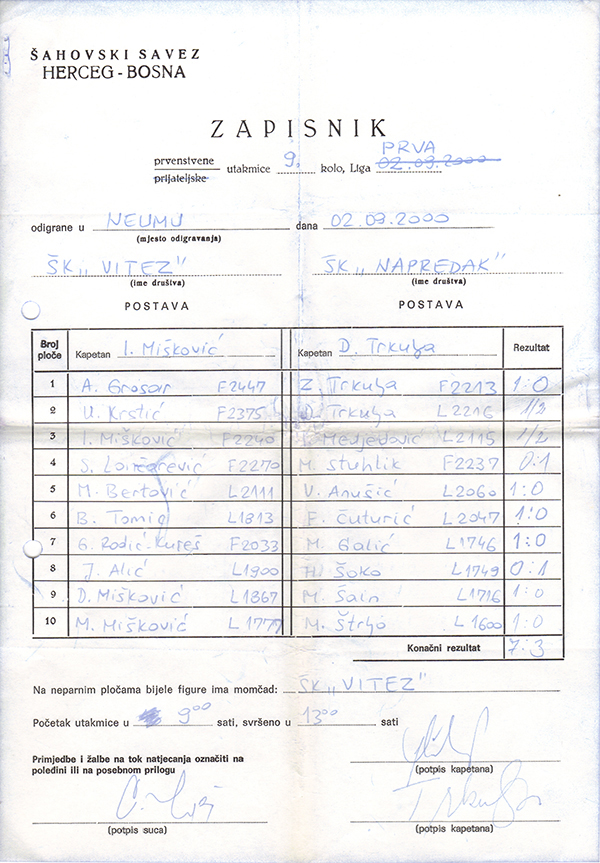 ŠAHOVSKI SAVEZ
HERCEG-BOSNA
ZAPISNIK
PRVA
prvenstvene
prijateljske utakmice 9. kolo, Liga 02.09.2000
odigrane u NEUMU dana 02.09.2000
(mjesto odigravanja)
ŠK „VITEZ" ŠK „NAPREDAK"
(ime društva) (ime društva)
POSTAVA POSTAVA
Broj ploče Kapetan I. Mišković Kapetan D. Trkulja Rezultat
1 A. Grosar F2447 Z. Trkulja F2213 1:0
2 U. Krstić F2375 D. Trkulja L2216 1/2
3 I. Mišković F2240 Medjedović L2115 1/2
4 S. Lončarević F2270 M. Stuhlik F2237 0:1
5 M. Bertović L2111 V. Anušić L2060 1:0
6 B. Tomić L1813 F. Čuturić L2047 1:0
7 G. Rodić-Kureš F2033 M. Galić L1746 1:0
8 J. Alić L1900 H. Šoko L1749 0:1
9 D. Mišković L1867 M. Šain L1716 1:0
10 M. Mišković L1777 M. Štrbo L1600 1:0
Konačni rezultat 7:3
Na neparnim pločama bijele figure ima momčad: ŠK „VITEZ"
Početak utakmice u 9⁰⁰ sati, svršeno u 13⁰⁰ sati
Primjedbe i žalbe na tok natjecanja označiti na
poledini ili na posebnom prilogu
(potpis kapetana)
Trkulja
(potpis suca) (potpis kapetana)